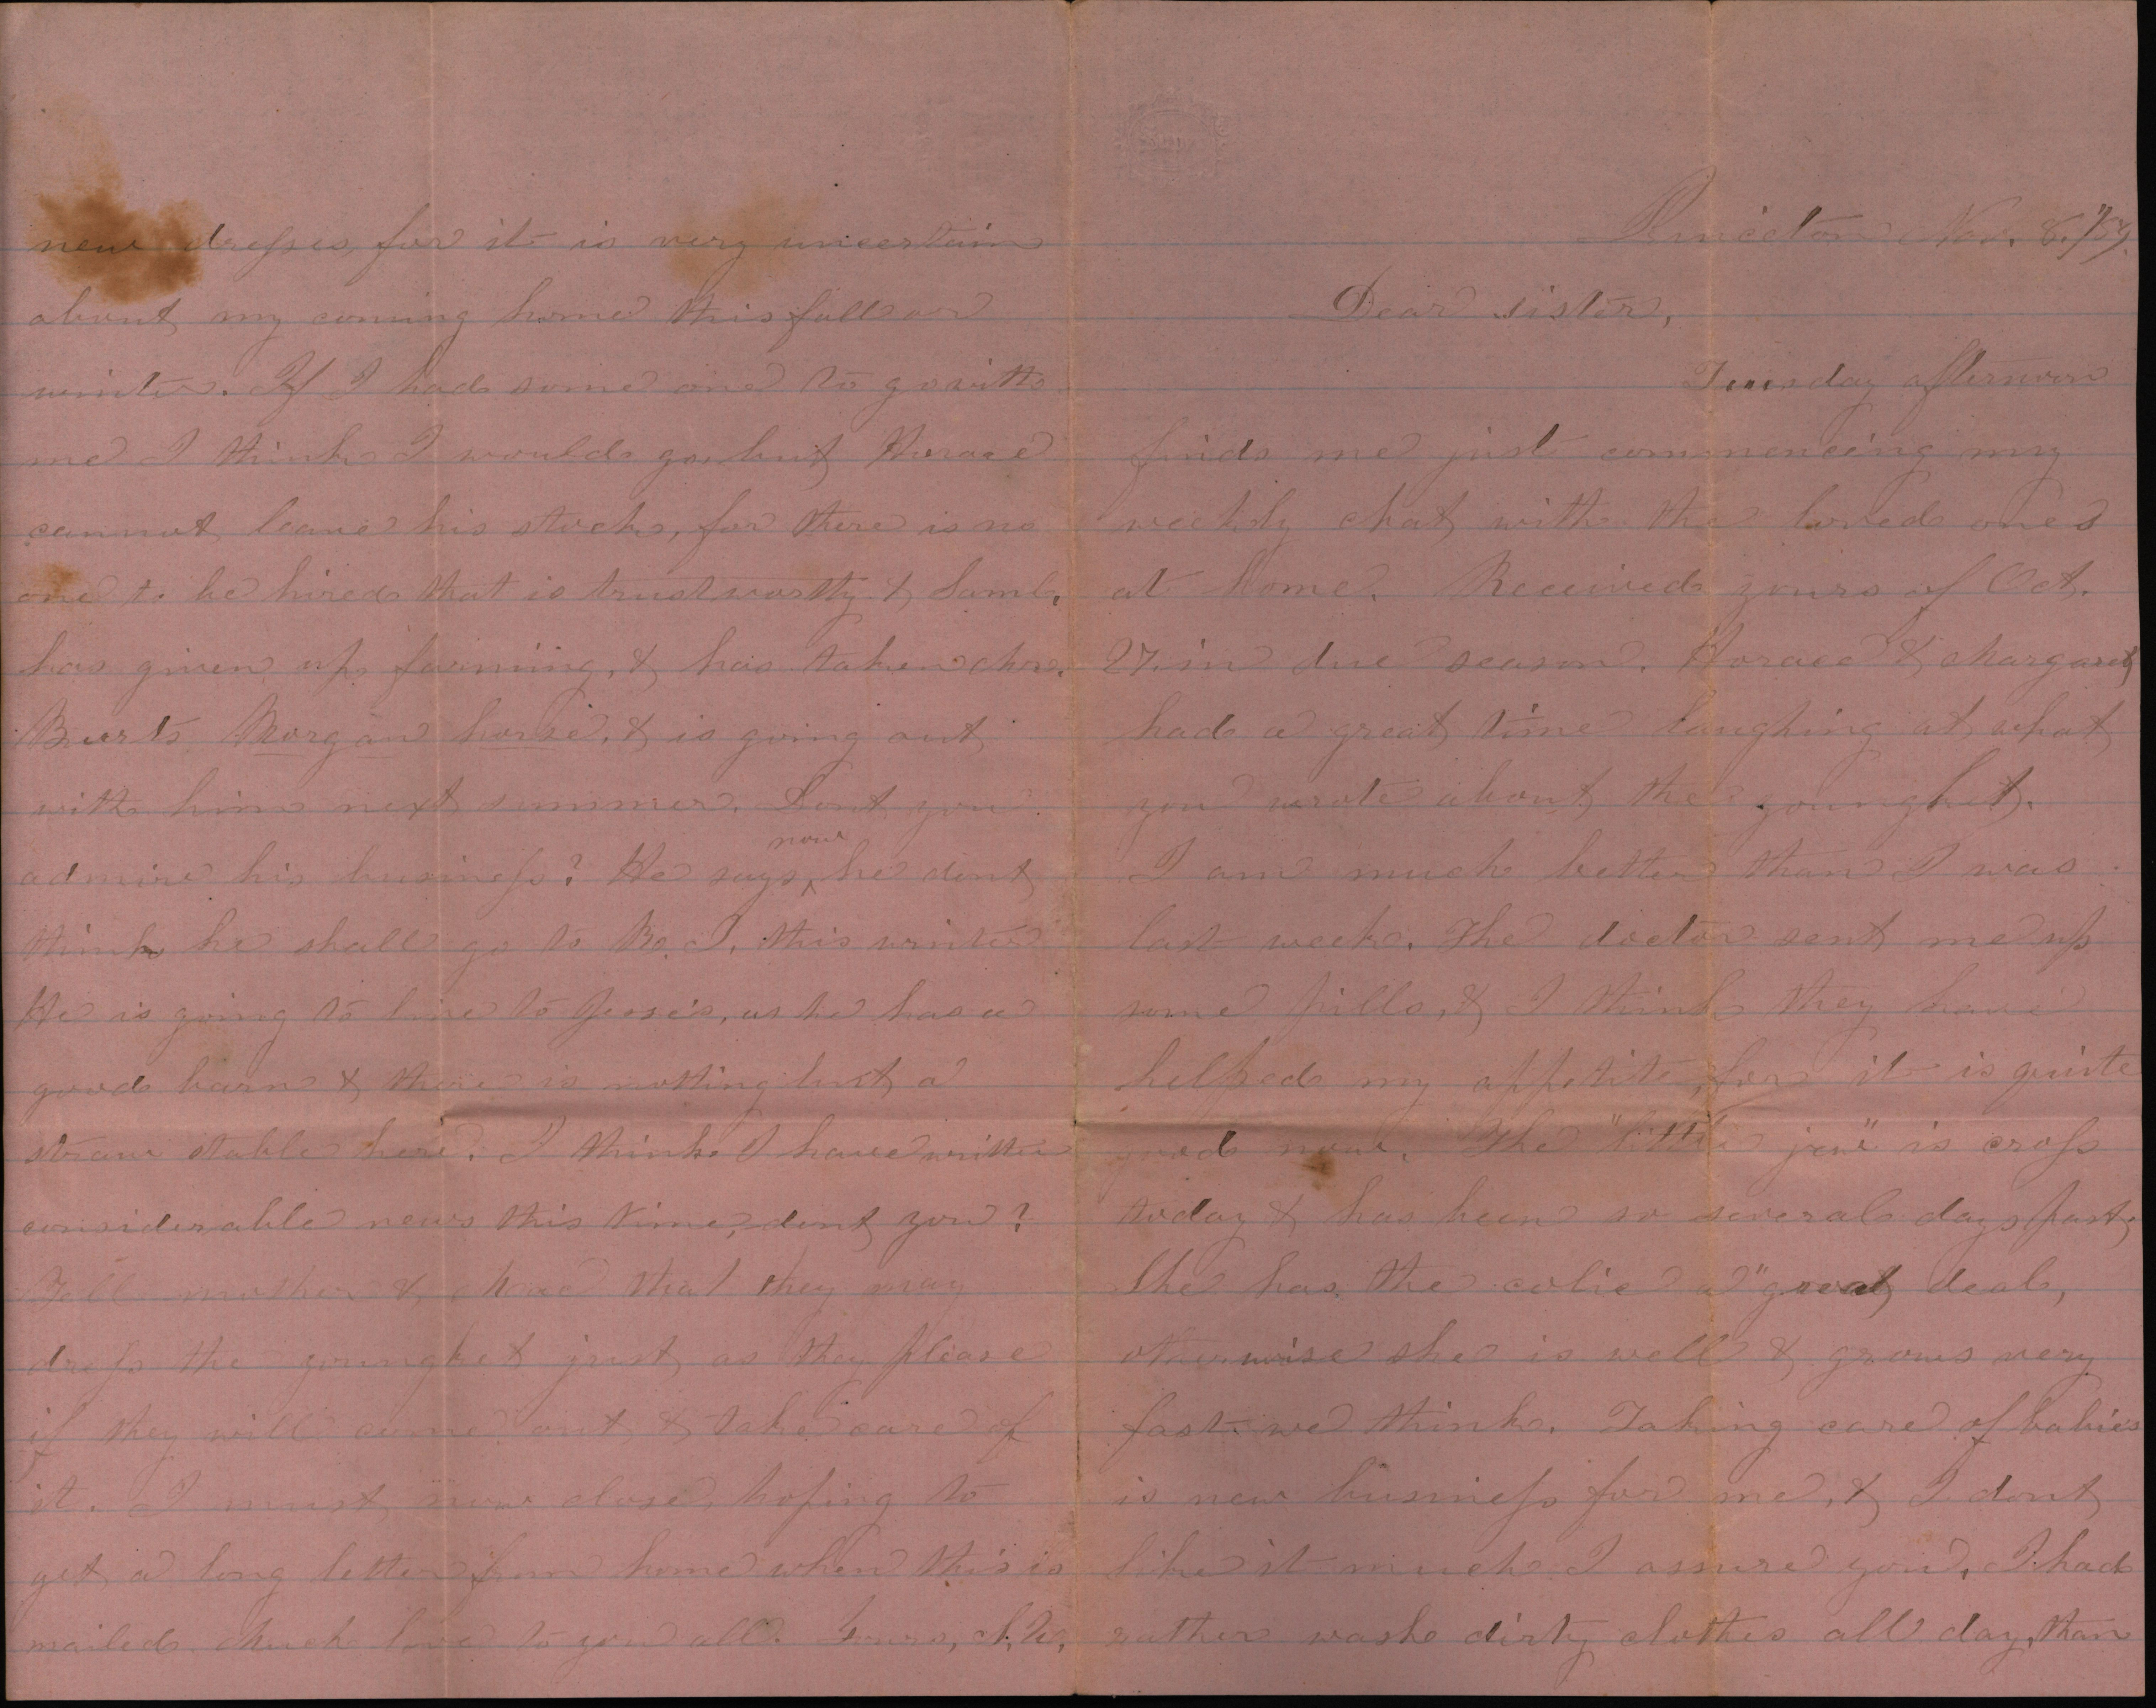 Princeton Nov. 8, /59.
Dear sister,
Tuesday afternoon
finds me just commencing my
weekly chat with the loved ones
at home. Received yours of Oct.
27. in due season. Horace & Margaret
had a great time laughing at what
you wrote about the youngket.
I am much better than I was
last week. The doctor sent me up
some pills, & I think they have
helped my appetite, for it is quite
good now. The "little jew" is cross
today & has been so several days past,
She has the colic a "great deal,
otherwise she is well & grows very
fast we think. Taking care of babies
is new business for me, & I dont
like it much I assure you. I had
rather wash dirty clothes all day, than
new dresses, for it is very uncertain
about my coming home this fall or
winter. If I had some one to go with
me I think I would go, but Horace
cannot leave his stock, for there is no
one to be hired that is trustworthy & Saml.
has given up farming, & has taken
Burts Morgan horse, & is going out
with him next summer. Dont you
admire his business? He says now he dont
think he shall go to R. I. this winter
He is going to live to Jesse's, as he has a
good barn & there is nothing but a
straw stable here. I think I have written
considerable news this time, dont you?
Tell mother & that they may
dress the youngket just as they please
if they will come out & take care of
it. I must now close, hoping to
get a long letter from home when this is
mailed. Much love to you all. Yours,